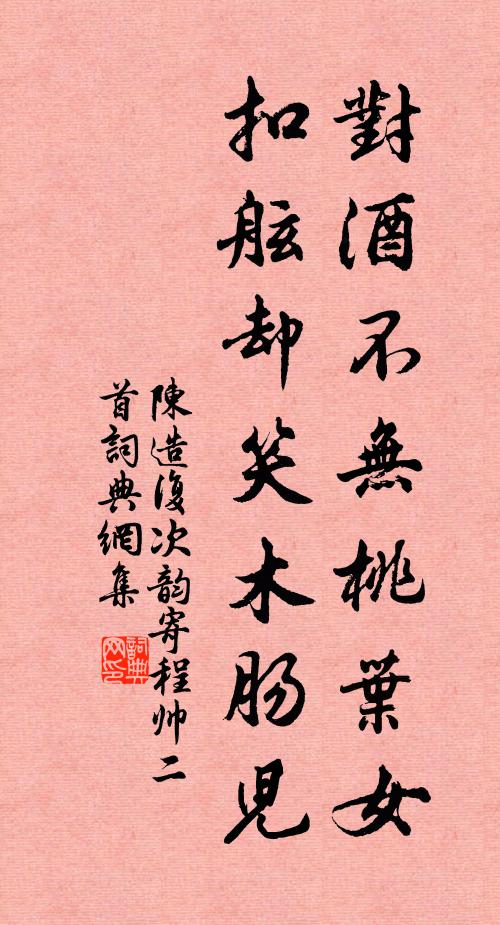 對酒不無桃葉女
扣舷却笑木肠兒
陳造復次韵寄程帅二
首詞典網集
詞典
网印